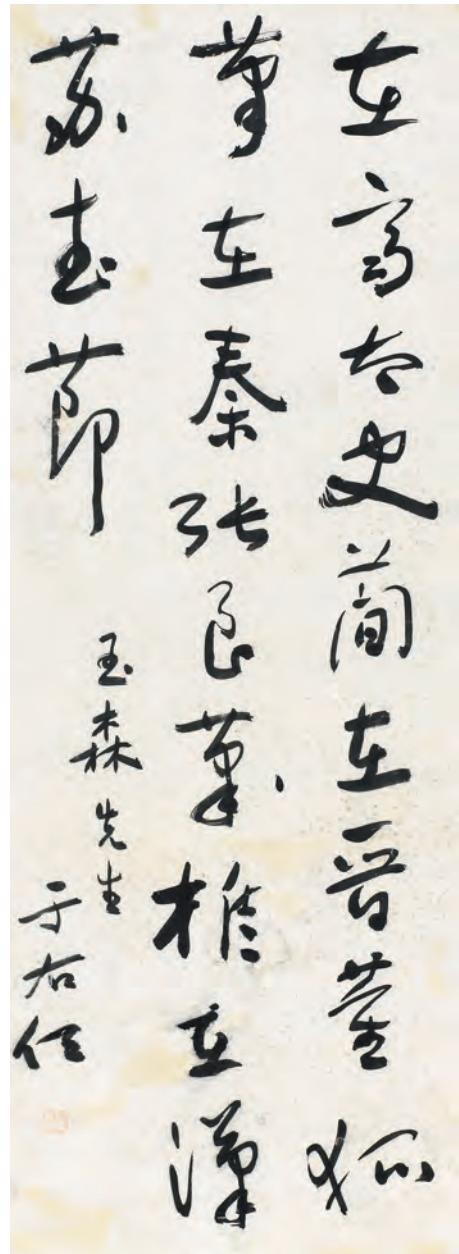 在齊太史簡在晉董狐
筆在秦張良筆椎在漢
蘇武節
玉森先生
于右任